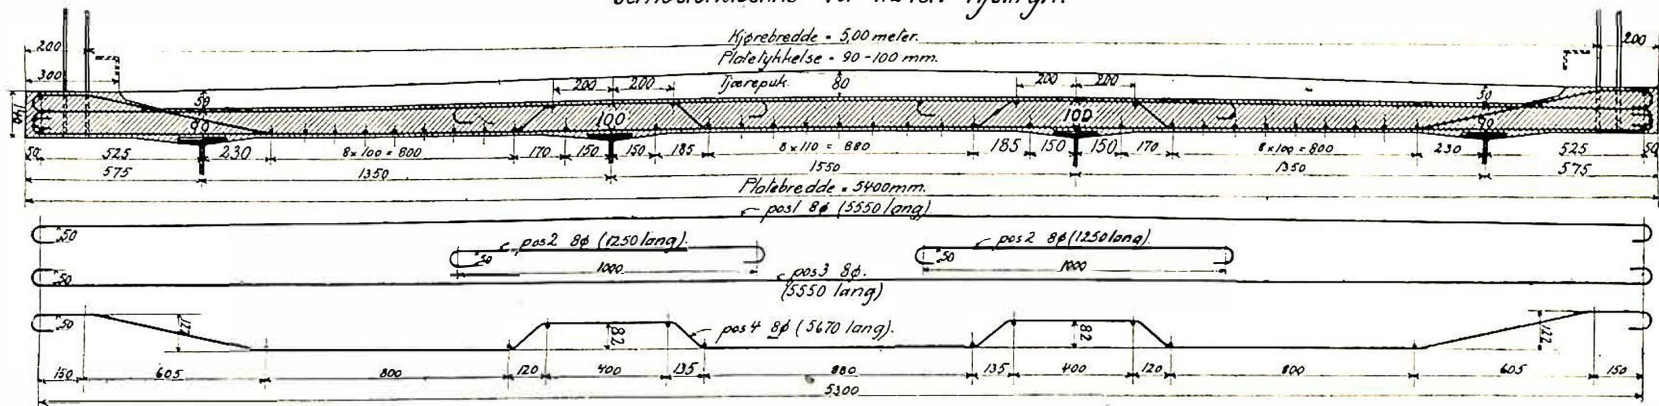 Kjørebredde = 5,00 meter.
Platetykkelse = 90-100 mm.
200 200
300 Tjærepuk. 80
200 200 200 200
50 50
140 90 100 100 90
50 525 230 8x100 = 800 170 150 150 185 8x110 = 880 185 150 150 170 8x100 = 800 230 525 50
575 1350 1550 1350 575
Platebredde = 5400mm.
pos1 8ø (5550 lang)
50
pos2 8ø (1250 lang). pos2 8ø (1250 lang).
50 50
1000 1000
50 pos3 8ø.
(5550 lang)
50 122 82 pos4 8ø (5670 lang). 82 122
150 605 800 120 400 135 880 135 400 120 800 605 150
5300